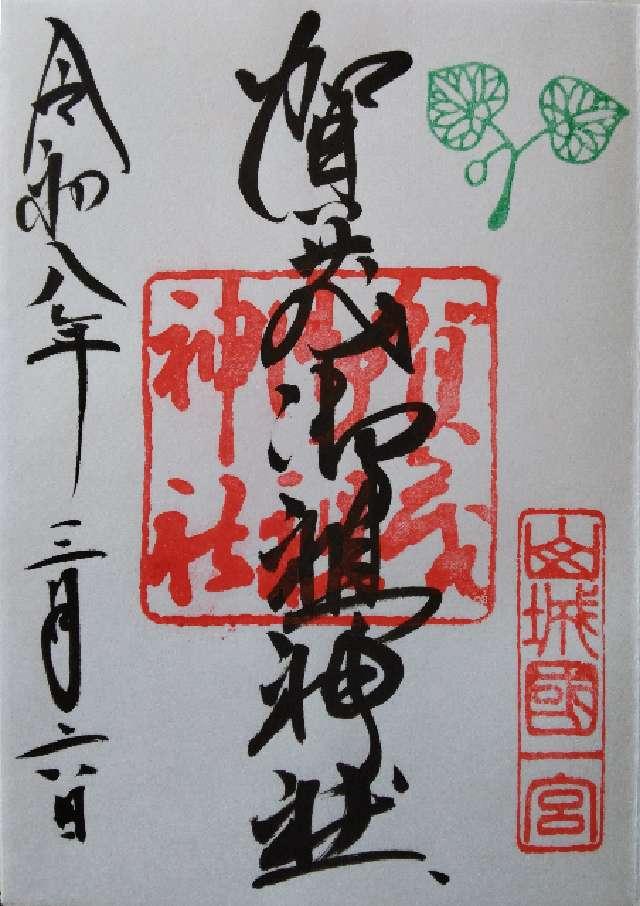 山城國一宮
賀茂御祖神社
賀茂御祖神社
令和八年三月二六日